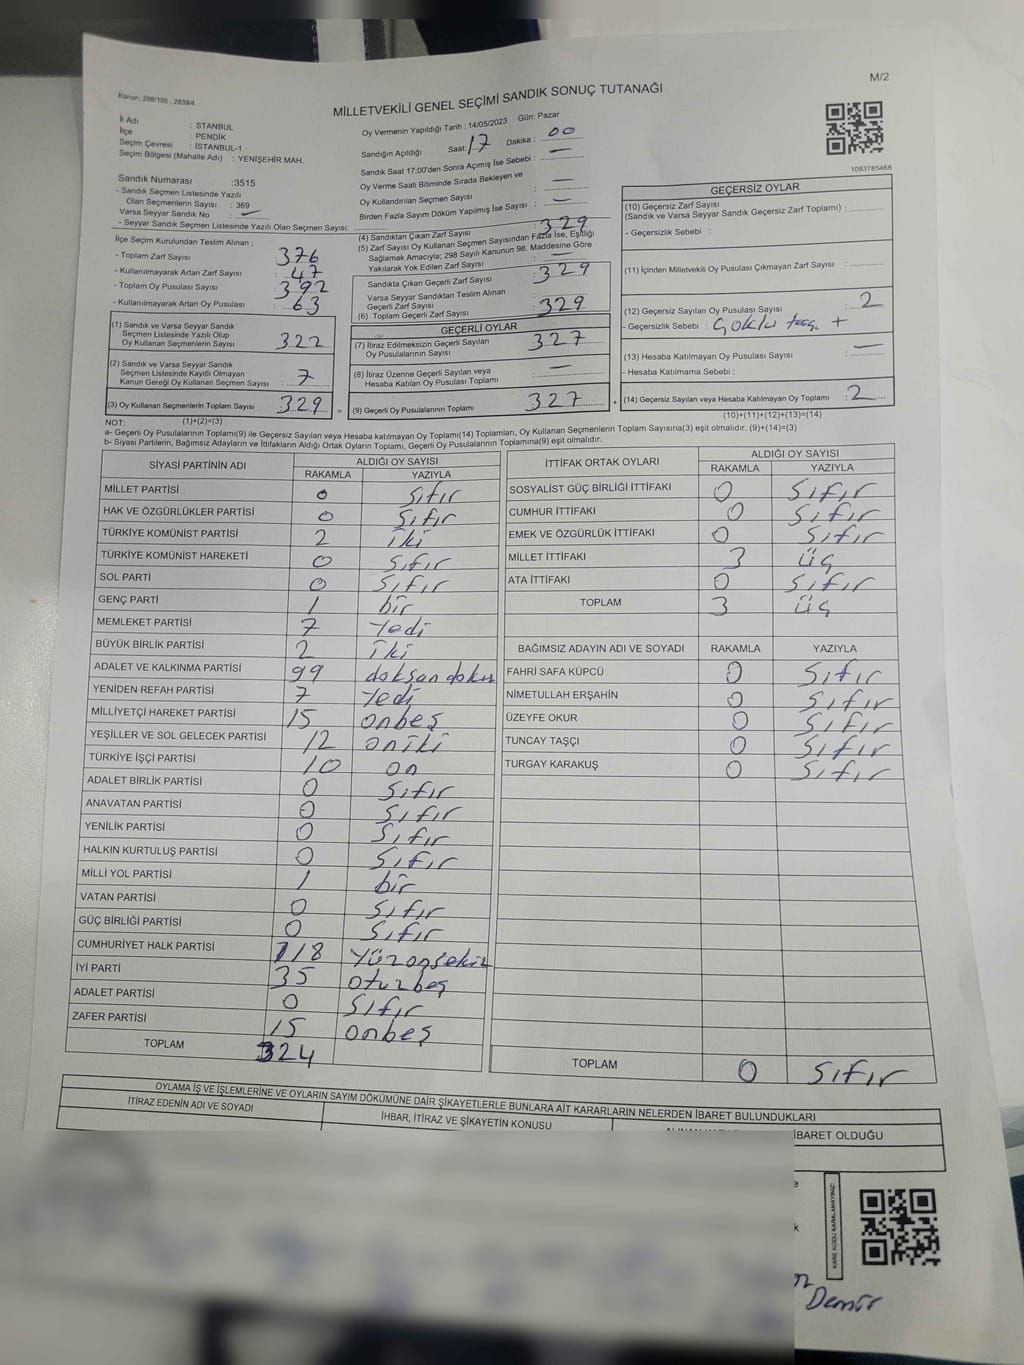 M/2
Kanun, 298/105 , 2839/4
MİLLETVEKİLİ GENEL SEÇİMİ SANDIK SONUÇ TUTANAĞI
İl Adı : STANBUL
İlçe : PENDİK
Seçim Çevresi : İSTANBUL-1
Seçim Bölgesi (Mahalle Adı) : YENİŞEHİR MAH.
Oy Vermenin Yapıldığı Tarih : 14/05/2023 Gün: Pazar
Sandığın Açıldığı Saat: 17 Dakika : 00
Sandık Saat 17:00'den Sonra Açımış İse Sebebi : —
Oy Verme Saati Bitiminde Sırada Bekleyen ve
Oy Kullandırılan Seçmen Sayısı : —
Birden Fazla Sayım Döküm Yapılmış İse Sayısı : —
1083785468
Sandık Numarası :3515
- Sandık Seçmen Listesinde Yazılı
Olan Seçmenlerin Sayısı : 369
Varsa Seyyar Sandık No : —
- Seyyar Sandık Seçmen Listesinde Yazılı Olan Seçmen Sayısı:
İlçe Seçim Kurulundan Teslim Alınan :
- Toplam Zarf Sayısı 376
- Kullanılmayarak Artan Zarf Sayısı : 47
- Toplam Oy Pusulası Sayısı : 392
- Kullanılmayarak Artan Oy Pusulası : 63
(1) Sandık ve Varsa Seyyar Sandık
Seçmen Listesinde Yazılı Olup
Oy Kullanan Seçmenlerin Sayısı : 322
(2) Sandık ve Varsa Seyyar Sandık
Seçmen Listesinde Kayıtlı Olmayan
Kanun Gereği Oy Kullanan Seçmen Sayısı : 7
(3) Oy Kullanan Seçmenlerin Toplam Sayısı : 329 =
(1)+(2)=(3)
(4) Sandıktan Çıkan Zarf Sayısı : 329
(5) Zarf Sayısı Oy Kullanan Seçmen Sayısından Fazla İse, Eşitliği
Sağlamak Amacıyla; 298 Sayılı Kanunun 98. Maddesine Göre
Yakılarak Yok Edilen Zarf Sayısı : —
Sandıkta Çıkan Geçerli Zarf Sayısı : 329
Varsa Seyyar Sandıktan Teslim Alınan
Geçerli Zarf Sayısı :
(6) Toplam Geçerli Zarf Sayısı : 329
GEÇERLİ OYLAR
(7) İtiraz Edilmeksizin Geçerli Sayılan
Oy Pusulalarının Sayısı : 327
(8) İtiraz Üzerine Geçerli Sayılan veya
Hesaba Katılan Oy Pusulası Toplamı : —
(9) Geçerli Oy Pusulalarının Toplamı : 327 +
GEÇERSİZ OYLAR
(10) Geçersiz Zarf Sayısı
(Sandık ve Varsa Seyyar Sandık Geçersiz Zarf Toplamı) :
- Geçersizlik Sebebi :
(11) İçinden Milletvekili Oy Pusulası Çıkmayan Zarf Sayısı :
(12) Geçersiz Sayılan Oy Pusulası Sayısı : 2
- Geçersizlik Sebebi : Çoklu +
(13) Hesaba Katılmayan Oy Pusulası Sayısı : —
- Hesaba Katılmama Sebebi :
(14) Geçersiz Sayılan veya Hesaba Katılmayan Oy Toplamı : 2
(10)+(11)+(12)+(13)=(14)
NOT:
a- Geçerli Oy Pusulalarının Toplamı(9) ile Geçersiz Sayılan veya Hesaba katılmayan Oy Toplamı(14) Toplamları, Oy Kullanan Seçmenlerin Toplam Sayısına(3) eşit olmalıdır. (9)+(14)=(3)
b- Siyasi Partilerin, Bağımsız Adayların ve İttifakların Aldığı Ortak Oyların Toplamı, Geçerli Oy Pusulalarının Toplamına(9) eşit olmalıdır.
SİYASİ PARTİNİN ADI ALDIĞI OY SAYISI
RAKAMLA YAZIYLA
MİLLET PARTİSİ 0 Sıfır
HAK VE ÖZGÜRLÜKLER PARTİSİ 0 Sıfır
TÜRKİYE KOMÜNİST PARTİSİ 2 iki
TÜRKİYE KOMÜNİST HAREKETİ 0 Sıfır
SOL PARTİ 0 Sıfır
GENÇ PARTİ 1 bir
MEMLEKET PARTİSİ 7 Yedi
BÜYÜK BİRLİK PARTİSİ 2 İki
ADALET VE KALKINMA PARTİSİ 99 doksandokuz
YENİDEN REFAH PARTİSİ 7 Yedi
MİLLİYETÇİ HAREKET PARTİSİ 15 onbeş
YEŞİLLER VE SOL GELECEK PARTİSİ 12 oniki
TÜRKİYE İŞÇİ PARTİSİ 10 on
ADALET BİRLİK PARTİSİ 0 Sıfır
ANAVATAN PARTİSİ 0 Sıfır
YENİLİK PARTİSİ 0 Sıfır
HALKIN KURTULUŞ PARTİSİ 0 Sıfır
MİLLİ YOL PARTİSİ 1 bir
VATAN PARTİSİ 0 Sıfır
GÜÇ BİRLİĞİ PARTİSİ 0 Sıfır
CUMHURİYET HALK PARTİSİ 118 Yüzonsekiz
İYİ PARTİ 35 otuzbeş
ADALET PARTİSİ 0 Sıfır
ZAFER PARTİSİ 15 onbeş
TOPLAM 324
İTTİFAK ORTAK OYLARI ALDIĞI OY SAYISI
RAKAMLA YAZIYLA
SOSYALİST GÜÇ BİRLİĞİ İTTİFAKI 0 Sıfır
CUMHUR İTTİFAKI 0 Sıfır
EMEK VE ÖZGÜRLÜK İTTİFAKI 0 Sıfır
MİLLET İTTİFAKI 3 üç
ATA İTTİFAKI 0 Sıfır
TOPLAM 3 üç
BAĞIMSIZ ADAYIN ADI VE SOYADI RAKAMLA YAZIYLA
FAHRİ SAFA KÜPCÜ 0 Sıfır
NİMETULLAH ERŞAHİN 0 Sıfır
ÜZEYFE OKUR 0 Sıfır
TUNCAY TAŞÇI 0 Sıfır
TURGAY KARAKUŞ 0 Sıfır
TOPLAM 0 Sıfır
OYLAMA İŞ VE İŞLEMLERİNE VE OYLARIN SAYIM DÖKÜMÜNE DAİR ŞİKAYETLERLE BUNLARA AİT KARARLARIN NELERDEN İBARET BULUNDUKLARI
İTİRAZ EDENİN ADI VE SOYADI İHBAR, İTİRAZ VE ŞİKAYETİN KONUSU İBARET OLDUĞU
KARE KODU KARALAMAYINIZ!
Demir